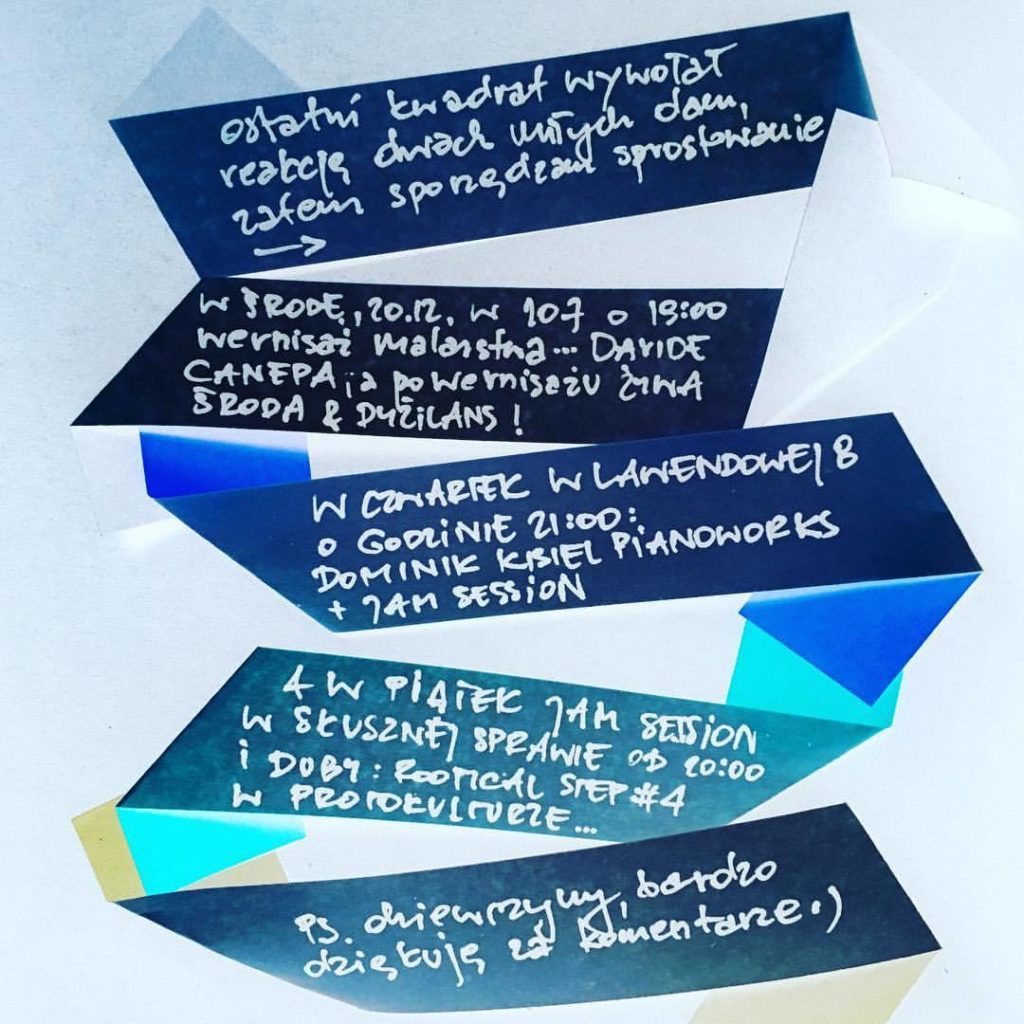 ostatni kwadrat wywołał
reakcję dwóch miłych dam,
zatem sporządzam sprostowanie
→
W ŚRODĘ, 20.12, W 107 O 19:00
wernisaż malarstwa... DAVIDE
CANEPA, a po wernisażu ŻYWA
ŚRODA & DYŻILANS!
W CZWARTEK W LAWENDOWEJ 8
O GODZINIE 21:00:
DOMINIK KISIEL PIANOWORKS
+ JAM SESSION
A W PIĄTEK JAM SESSION
W SŁUSZNEJ SPRAWIE OD 20:00
I DUBY: ROOTICAL STEP #4
W PROTOKULTURZE...
PS. dziewczyny, bardzo
dziękuję za komentarze :)